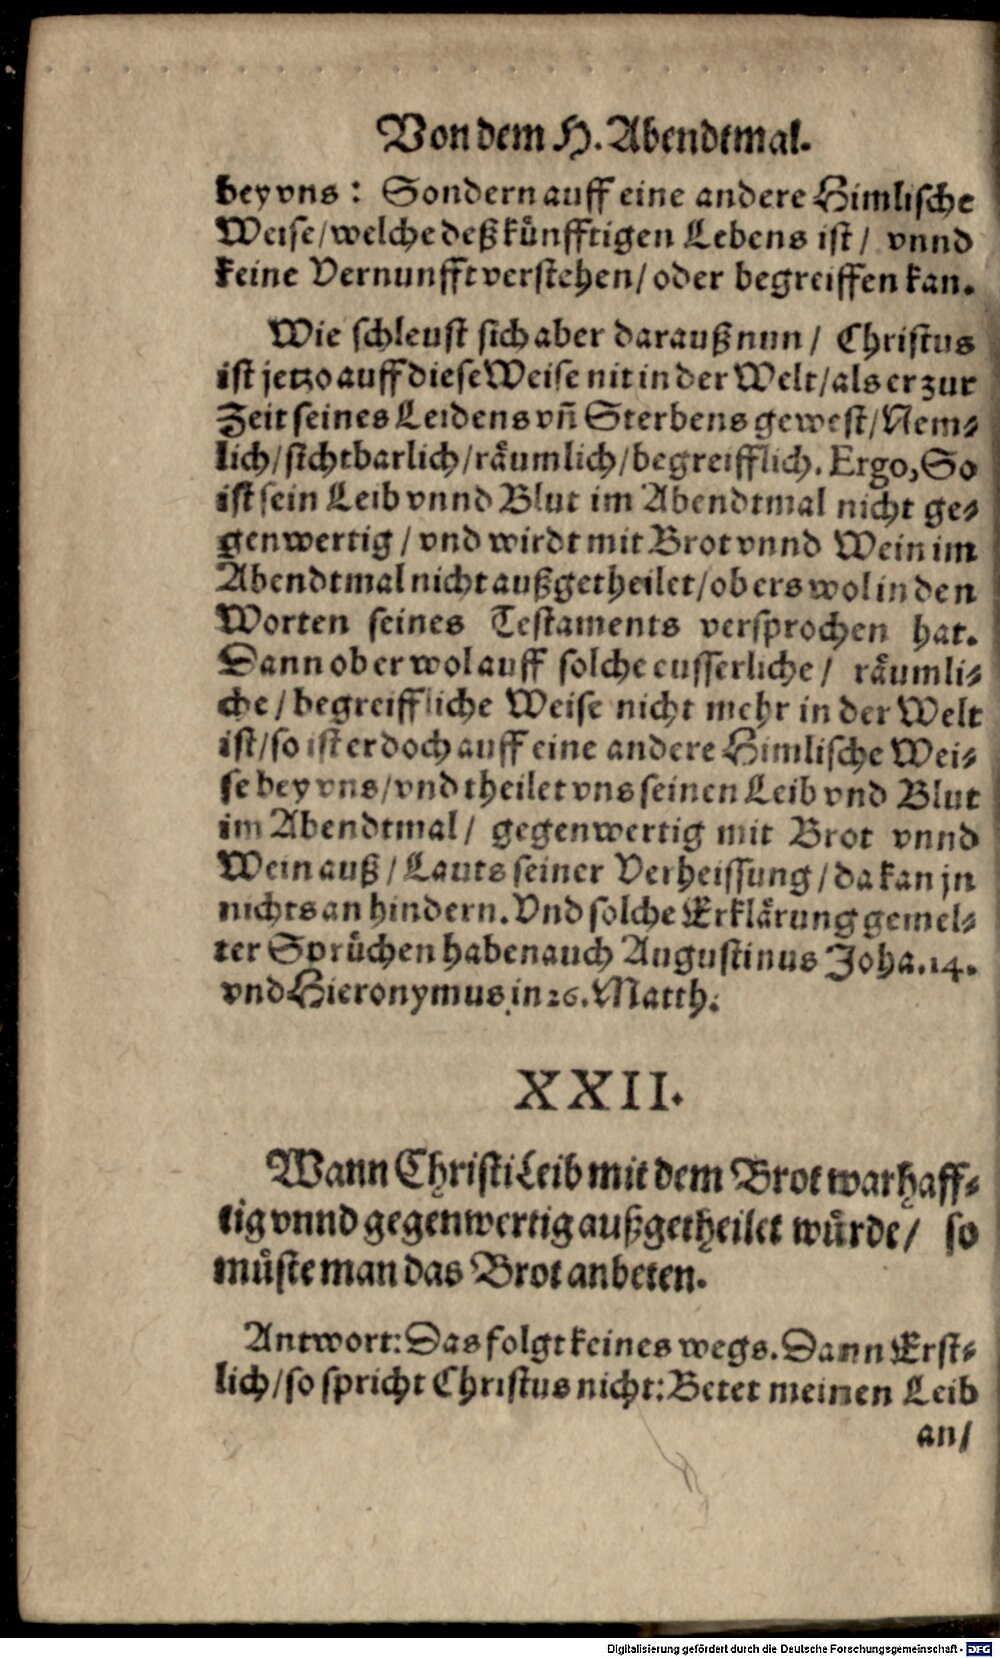 Von dem H. Abendtmal.
bey vns: Sondern auff eine andere Himlische
Weise/welche deß künfftigen Lebens ist/ vnnd
keine Vernunfft verstehen/oder begreiffen kan.
Wie schleust sich aber darauß nun/ Christus
ist jetzo auff diese Weise nit in der Welt/als er zur
Zeit seines Leidens vn̄ Sterbens gewest/Nem⸗
lich/sichtbarlich/räumlich/begreifflich. Ergo, So
ist sein Leib vnnd Blut im Abendtmal nicht ge⸗
genwertig/vnd wirdt mit Brot vnnd Wein im
Abendtmal nicht außgetheilet/ob ers wol in den
Worten seines Testaments versprochen hat.
Dann ob er wol auff solche eusserliche/ räumli⸗
che/begreiffliche Weise nicht mehr in der Welt
ist/so ist er doch auff eine andere Himlische Wei⸗
se bey vns/vnd theilet vns seinen Leib vnd Blut
im Abendtmal/ gegenwertig mit Brot vnnd
Wein auß/Lauts seiner Verheissung/da kan jn
nichts an hindern. Vnd solche Erklärung gemel⸗
ter Sprüchen haben auch Augustinus Joha. 14.
vnd Hieronymus in 26. Matth.
XXII.
Wann Christi Leib mit dem Brot warhaff⸗
tig vnnd gegenwertig außgetheilet würde/ so
müste man das Brot anbeten.
Antwort: Das folgt keines wegs. Dann Erst⸗
lich/so spricht Christus nicht: Betet meinen Leib
an/
Digitalisierung gefördert durch die Deutsche Forschungsgemeinschaft - DFG